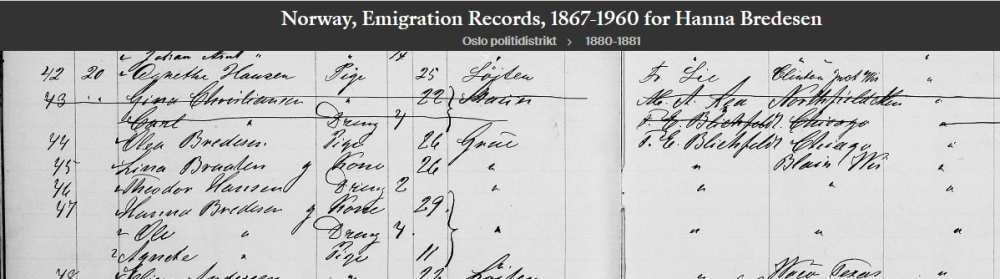 Norway, Emigration Records, 1867-1960 for Hanna Bredesen
Oslo politidistrikt › 1880-1881
Johan " " 14
42 20 Hansen Pige 25 Løjten Fr. Lie Clinton Wis "
43 " Gina Christiansen " 22 M. A. Northfield "
Carl " Dreng 4 F. E. Blichfeldt Chicago "
44 Olga Bredesen Pige 26 Grue F. E. Blichfeldt Chicago "
45 Lina Braaten g Kone 26 " " Blain Wis "
46 Theodor Hansen Dreng 2 " " "
47 Hanna Bredesen g Kone 29
Ole " Dreng 4 " " " "
Agnethe " Pige 11
48 Andersen 22 Løjten Waco Texas "